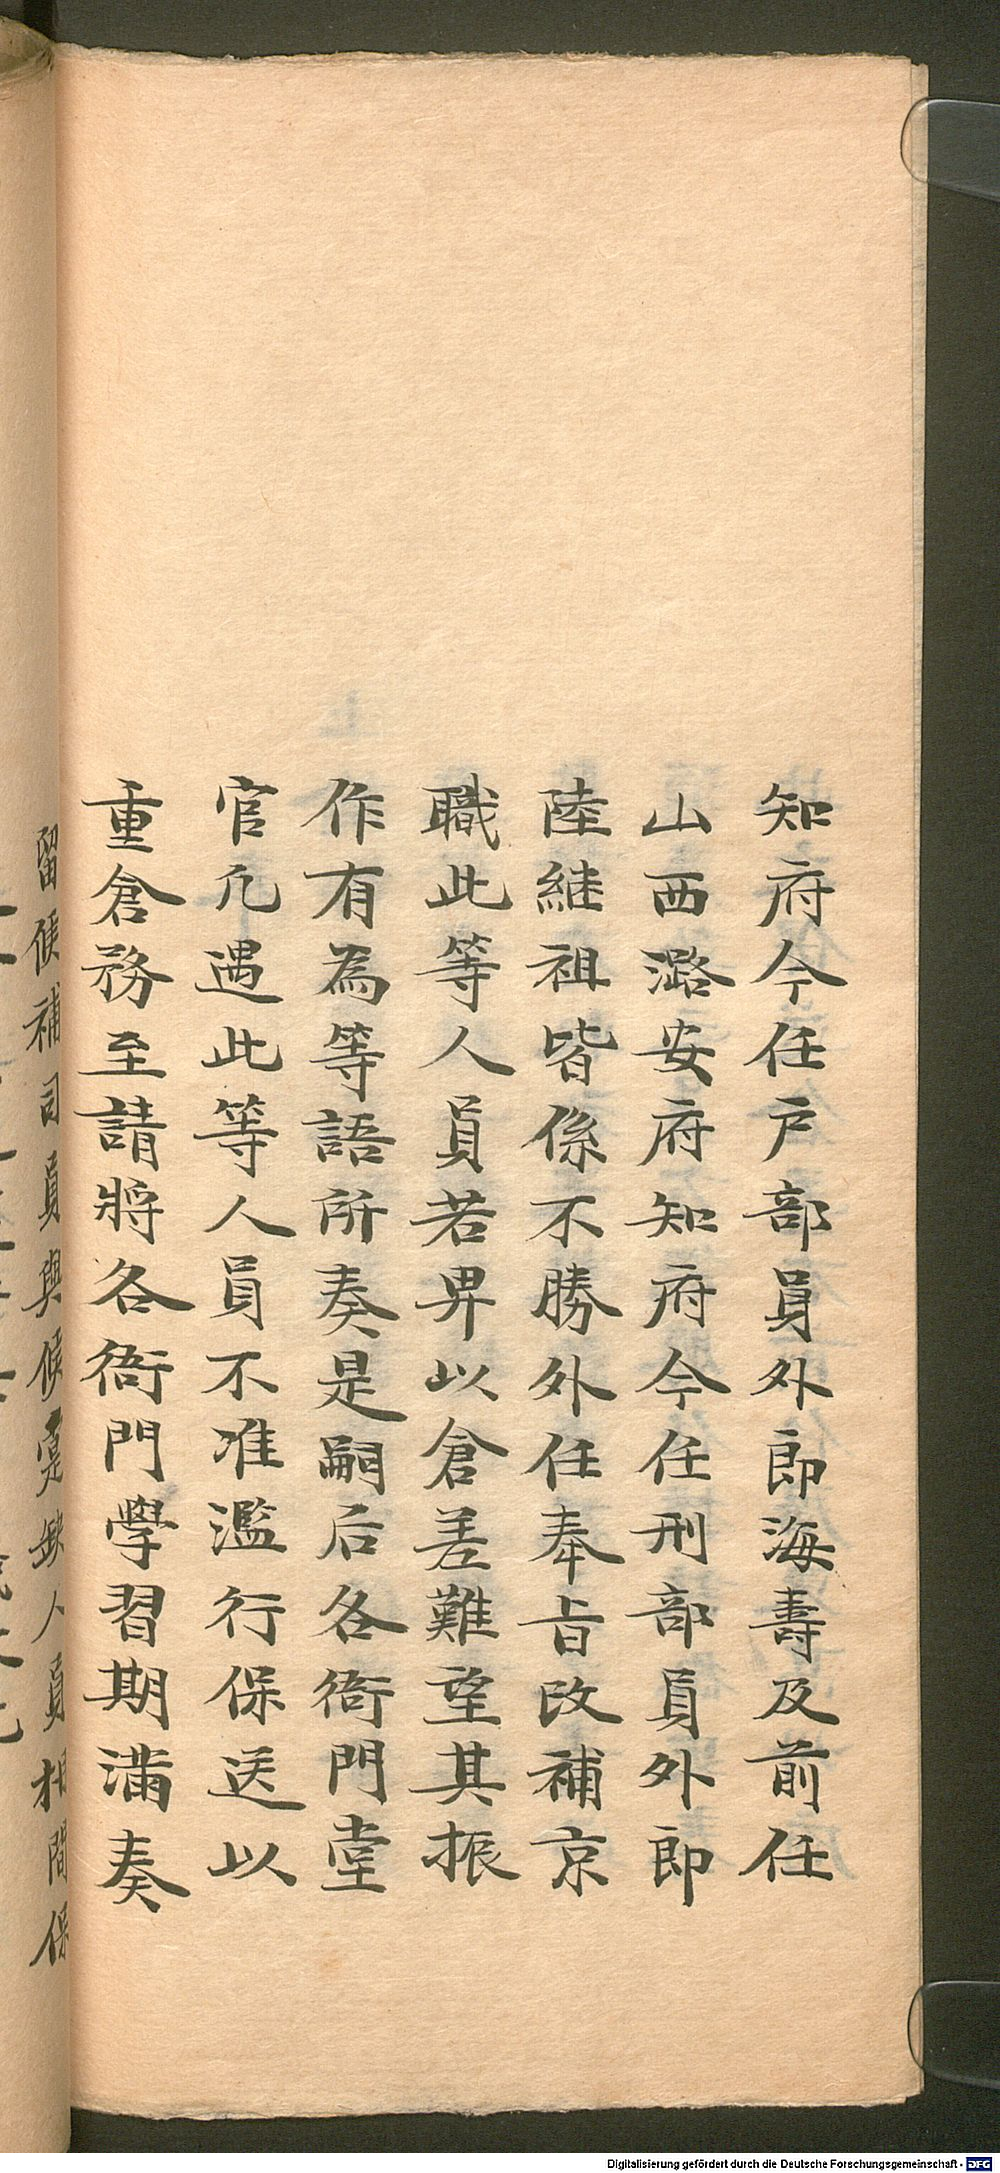 知府今任戶部員外郎海壽及前任
山西潞安府知府今任刑部員外郎
陸継祖皆係不勝外任奉旨改補京
職此等人員若畀以倉差難望其振
作有為等語所奏是嗣后各衙門堂
官凡遇此等人員不准濫行保送以
重倉務至請將各衙門學習期滿奏
留候補司員與候選缺人員相間保
Digitalisierung gefördert durch die Deutsche Forschungsgemeinschaft - DFG